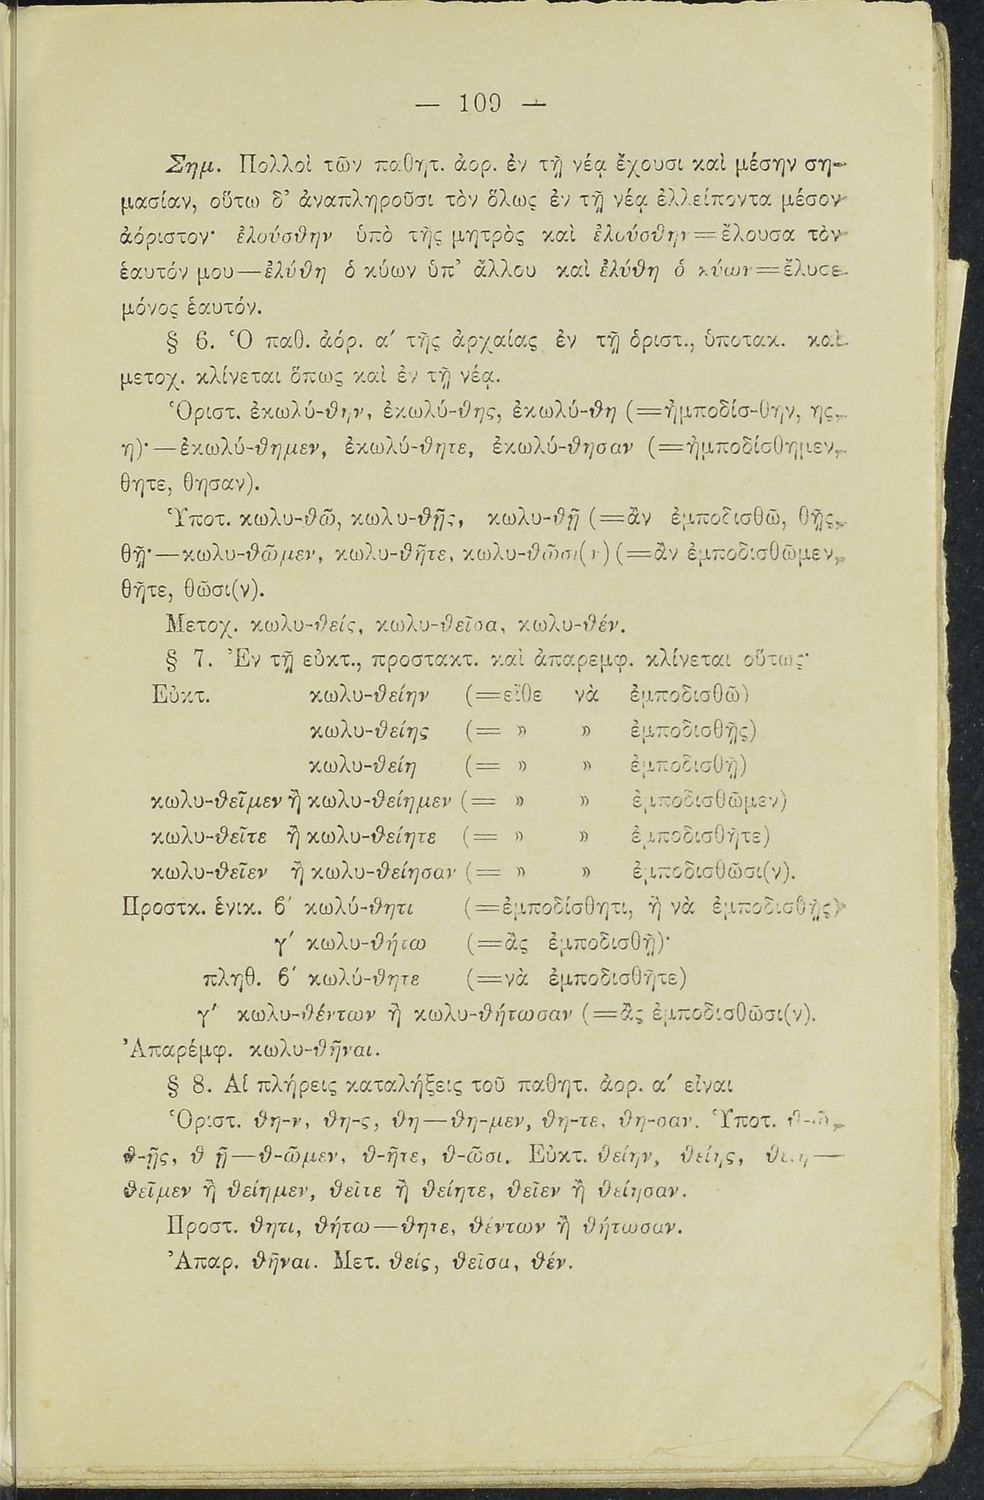 — 109 —
Σημ. Πολλοὶ τῶν παθητ. ἀορ. ἐν τῇ νέᾳ ἔχουσι καὶ μέσην ση-
μασίαν, οὕτω δ' ἀναπληροῦσι τὸν ὅλως ἐν τῇ νέᾳ ἐλλείποντα μέσον
ἀόριστον· ἐλούσθην ὑπὸ τῆς μητρὸς καὶ ἐλούσθην=ἔλουσα τὸν
ἑαυτόν μου—ἐλύθη ὁ κύων ὑπ' ἄλλου καὶ ἐλύθη ὁ κύων=ἔλυσε
μόνος ἑαυτόν.
§ 6. Ὁ παθ. ἀόρ. α' τῆς ἀρχαίας ἐν τῇ ὁριστ., ὑποτακ. καὶ
μετοχ. κλίνεται ὅπως καὶ ἐν τῇ νέᾳ.
Ὁριστ. ἐκωλύ-θην, ἐκωλύ-θης, ἐκωλύ-θη (=ἠμποδίσ-θην, ης,
η)·—ἐκωλύ-θημεν, ἐκωλύ-θητε, ἐκωλύ-θησαν (=ἠμποδίσθημεν,
θητε, θησαν).
Ὑποτ. κωλυ-θῶ, κωλυ-θῇς, κωλυ-θῇ (=ἂν ἐμποδισθῶ, θῇς,
θῇ·—κωλυ-θῶμεν, κωλυ-θῆτε, κωλυ-θῶσι(ν) (=ἂν ἐμποδισθῶμεν,
θῆτε, θῶσι(ν).
Μετοχ. κωλυ-θείς, κωλυ-θεῖσα, κωλυ-θέν.
§ 7. Ἐν τῇ εὐκτ., προστακτ. καὶ ἀπαρεμφ. κλίνεται οὕτως·
Εὐκτ. κωλυ-θείην (=εἴθε νὰ ἐμποδισθῶ)
κωλυ-θείης (= » » ἐμποδισθῇς)
κωλυ-θείη (= » » ἐμποδισθῇ)
κωλυ-θεῖμεν ἢ κωλυ-θείημεν (= » » ἐμποδισθῶμεν)
κωλυ-θεῖτε ἢ κωλυ-θείητε (= » » ἐμποδισθῆτε)
κωλυ-θεῖεν ἢ κωλυ-θείησαν (= » » ἐμποδισθῶσι(ν).
Προστκ. ἑνικ. β' κωλύ-θητι (=ἐμποδίσθητι, ἢ νὰ ἐμποδισθῇς)
γ' κωλυ-θήτω (=ἂς ἐμποδισθῇ)·
πληθ. β' κωλύ-θητε (=νὰ ἐμποδισθῆτε)
γ' κωλυ-θέντων ἢ κωλυ-θήτωσαν (=ἂς ἐμποδισθῶσι(ν).
Ἀπαρέμφ. κωλυ-θῆναι.
§ 8. Αἱ πλήρεις καταλήξεις τοῦ παθητ. ἀορ. α' εἶναι
Ὁριστ. θη-ν, θη-ς, θη—θη-μεν, θη-τε, θη-σαν. Ὑποτ. θ-ῶ,
θ-ῇς, θ ῇ—θ-ῶμεν, θ-ῆτε, θ-ῶσι. Εὐκτ. θείην, θείης, θείη—
θεῖμεν ἢ θείημεν, θεῖτε ἢ θείητε, θεῖεν ἢ θείησαν.
Προστ. θητι, θήτω—θητε, θέντων ἢ θήτωσαν.
Ἀπαρ. θῆναι. Μετ. θείς, θεῖσα, θέν.